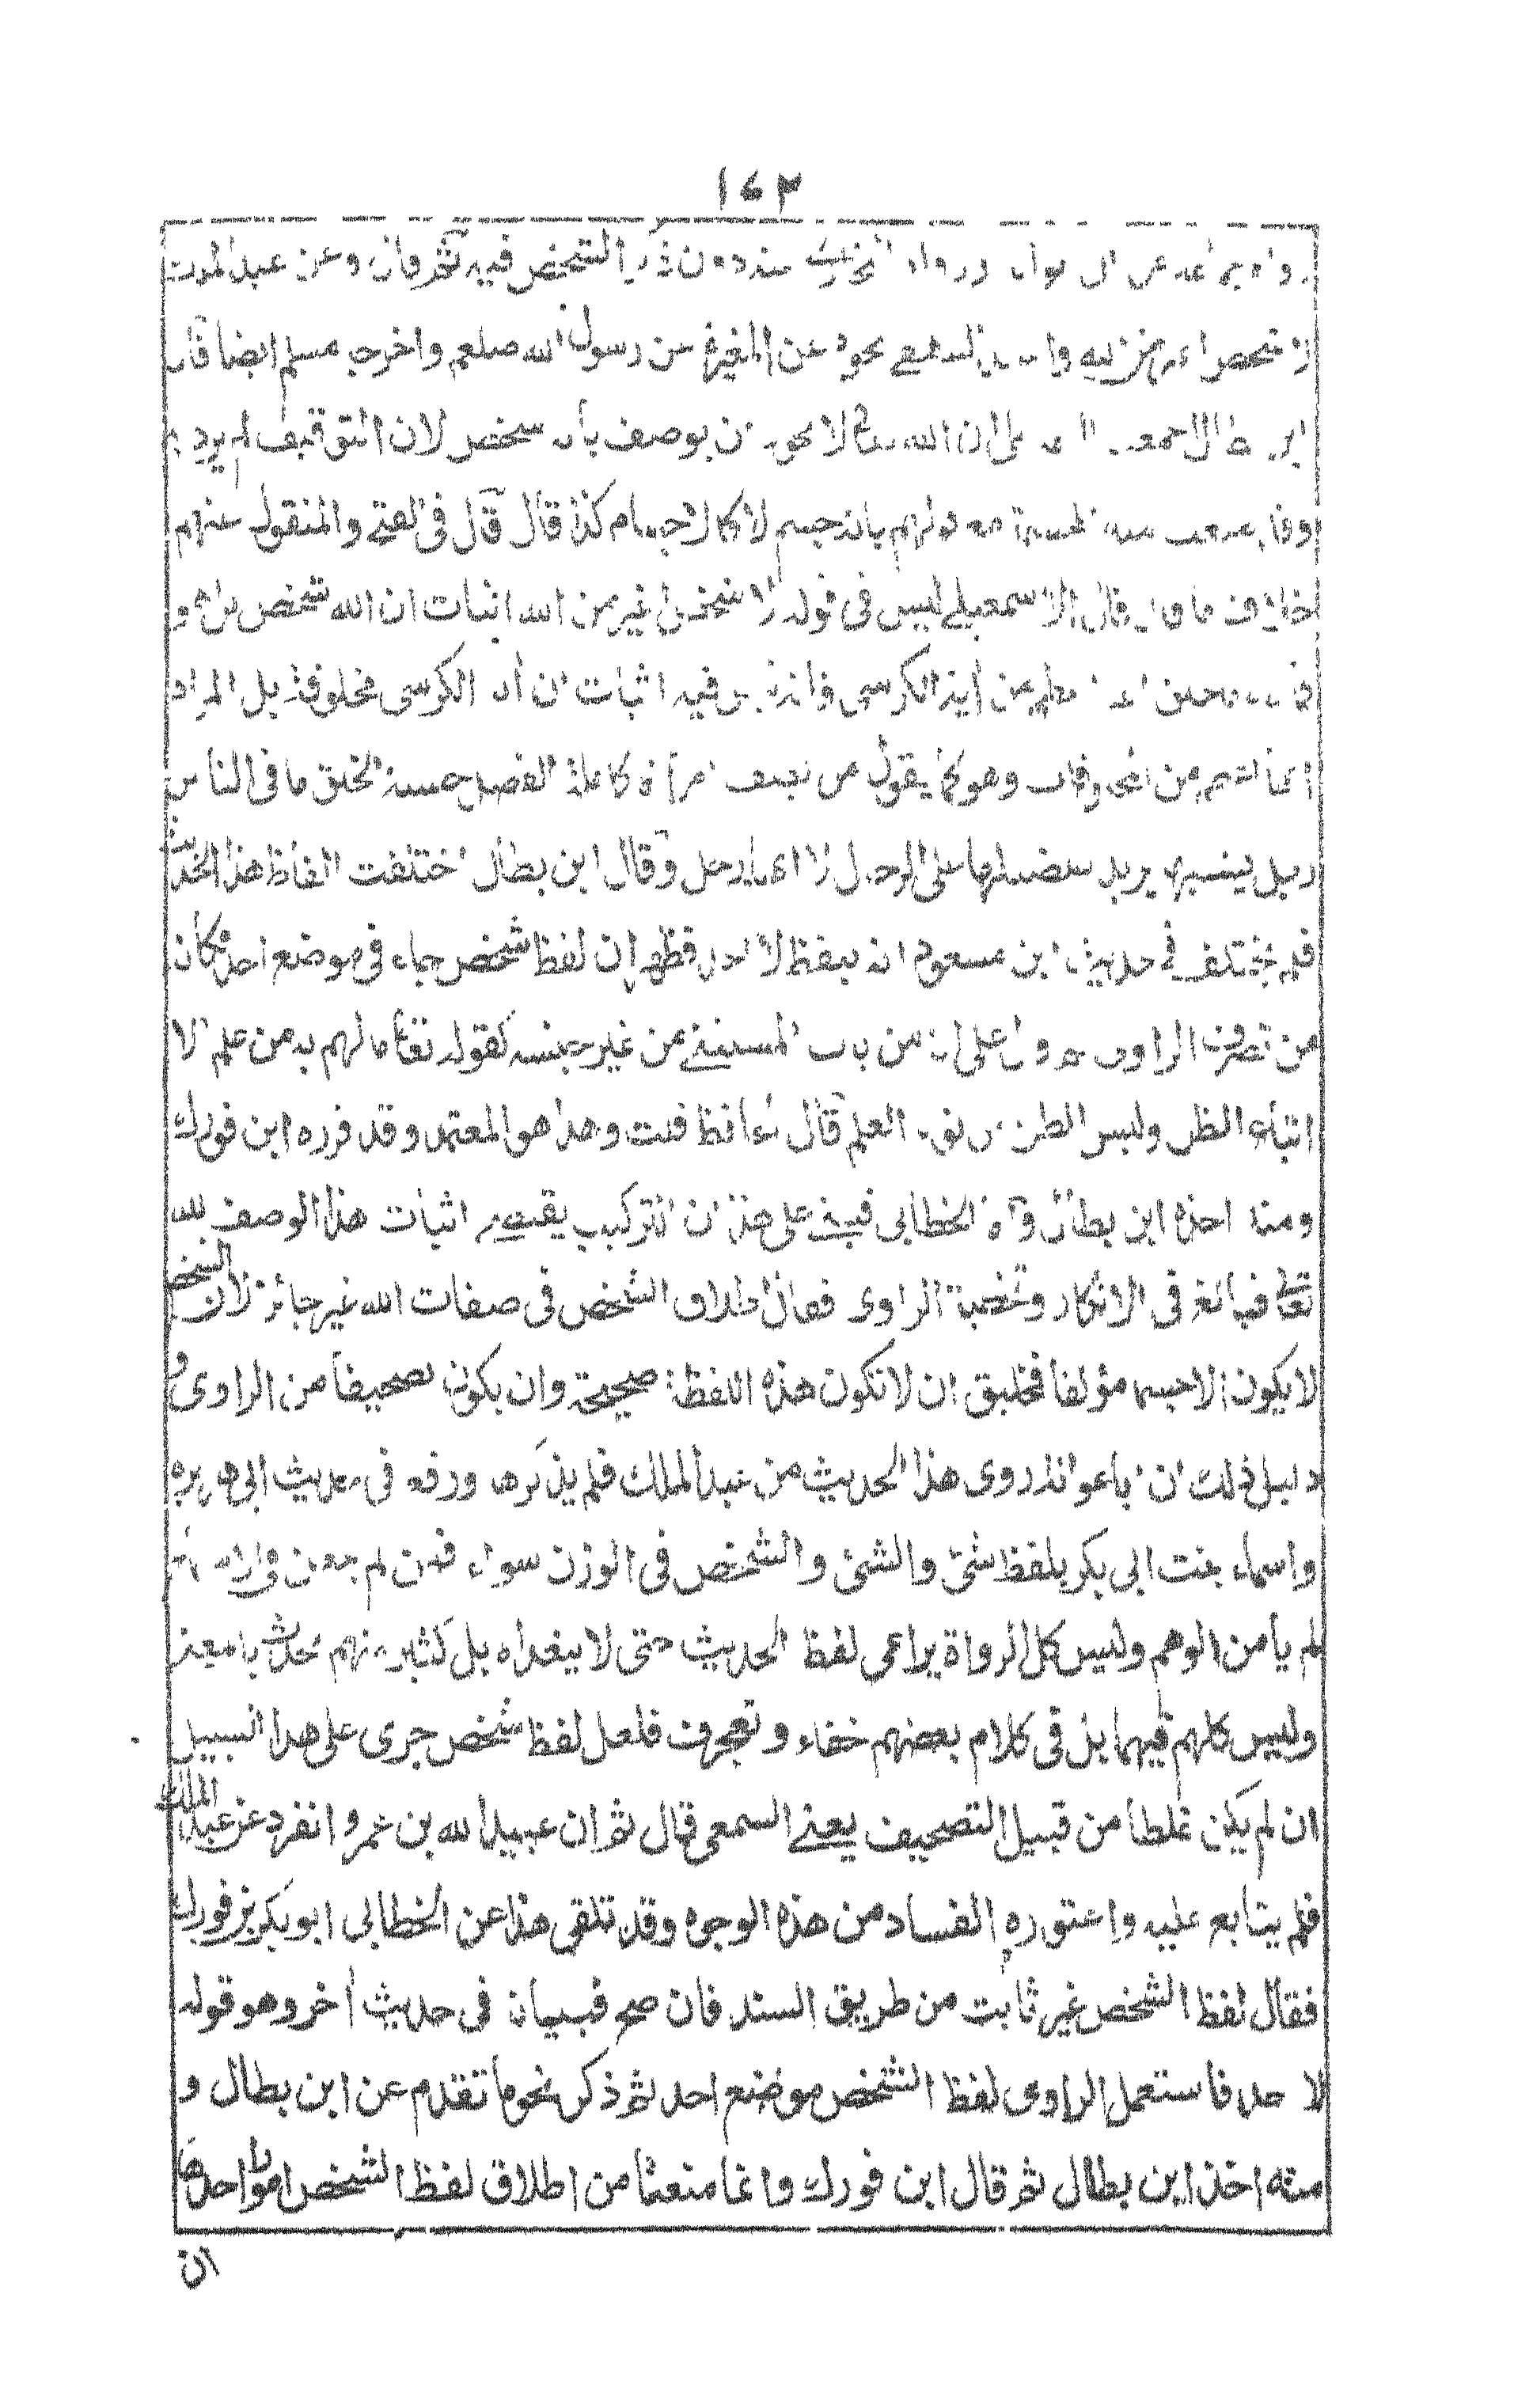 ١٤٣
دون ذكر الشخص فيه ثم قال وعن عبد الملك
لا شخص اغير من الله عن المغيرة عن رسول الله صلعم واخرجه مسلم ايضا قال
ابن بطال اجمعت على ان الله تعالى لا يجوز ان يوصف بأنه شخص لان التوقيف لم يرد به
وقد منعت منه المجسمة مع قولهم بانه جسم لا كالاجسام كذا قال قال فى الفتح والمنقول عنهم
خلاف ما قال قال الاسمعيلے ليس فى قوله لا شخص اغير من الله اثبات ان الله شخص بل هو
اعظم من أية الكرسى فانه ليس فيه اثبات ان أية الكرسى مخلوقة بل المراد
انها اعظم من المخلوقات وهو كما يقول من يصف امرأة كاملة الفضل حسنة الخلق ما فى الناس
رجل يشبهها يريد تفضيلها على الرجال لا انها رجل وقال ابن بطال اختلفت الفاظ هذا الحديث
فلم يختلف فى حديث ابن مسعود انه بلفظ لا احد فظهر ان لفظ شخص جاء فى موضع احد فكأن
من تصرف الراوى ثم قال على انه من باب المستثنے من غير جنسه كقوله تعا ما لهم به من علم الا
اتباع الظن وليس الظن من نوع العلم قال الحافظ قلت وهذا هو المعتمد وقد قرره ابن فورك
ومنه اخذه ابن بطال وأما الخطابى فبنے على هذا ان التركيب يقتضے اثبات هذا الوصف لله
تعا فبالغ فى الانكار وتخطئة الراوى فقال اطلاق الشخص فى صفات الله غير جائز لان الشخص
لا يكون الا جسما مؤلفا فخليق ان لا تكون هذه اللفظة صحيحة وان يكون تصحيفا من الراوى و
دليل ذلك ان ابا عوانة روى هذا الحديث من عبد الملك فلم يذكرها ورفع فى حديث ابى هريره
واسماء بنت ابى بكر بلفظ شئ والشئ والشخص فى الوزن سواء فمن لم يمعن فى
لم يأمن الوهم وليس كل الرواة يراعى لفظ الحديث حتى لا يتعداه بل كثير منهم يحدث بالمعنے
وليس كلهم فيهما بل فى كلام بعضهم خفاء وتعجرف فلعل لفظ شخص جرى على هذا السبيل
ان لم يكن غلطا من قبيل التصحيف يعنے السمعى قال ثم ان عبيد الله بن عمرو انفرد عن عبد الملك
فلم يتابع عليه واعتوره الفساد من هذه الوجوه وقد تلقى هذا عن الخطابى ابو بكر بن فورك
فقال لفظ الشخص غير ثابت من طريق السند فان صح فبيانه فى حديث أخر وهو قوله
لا احد فاستعمل الراوى لفظ الشخص موضع احد ثم ذكر نحو ما تقدم عن ابن بطال و
منه اخذ ابن بطال ثم قال ابن فورك وانما منعنا من اطلاق لفظ الشخص امور احدها
ان